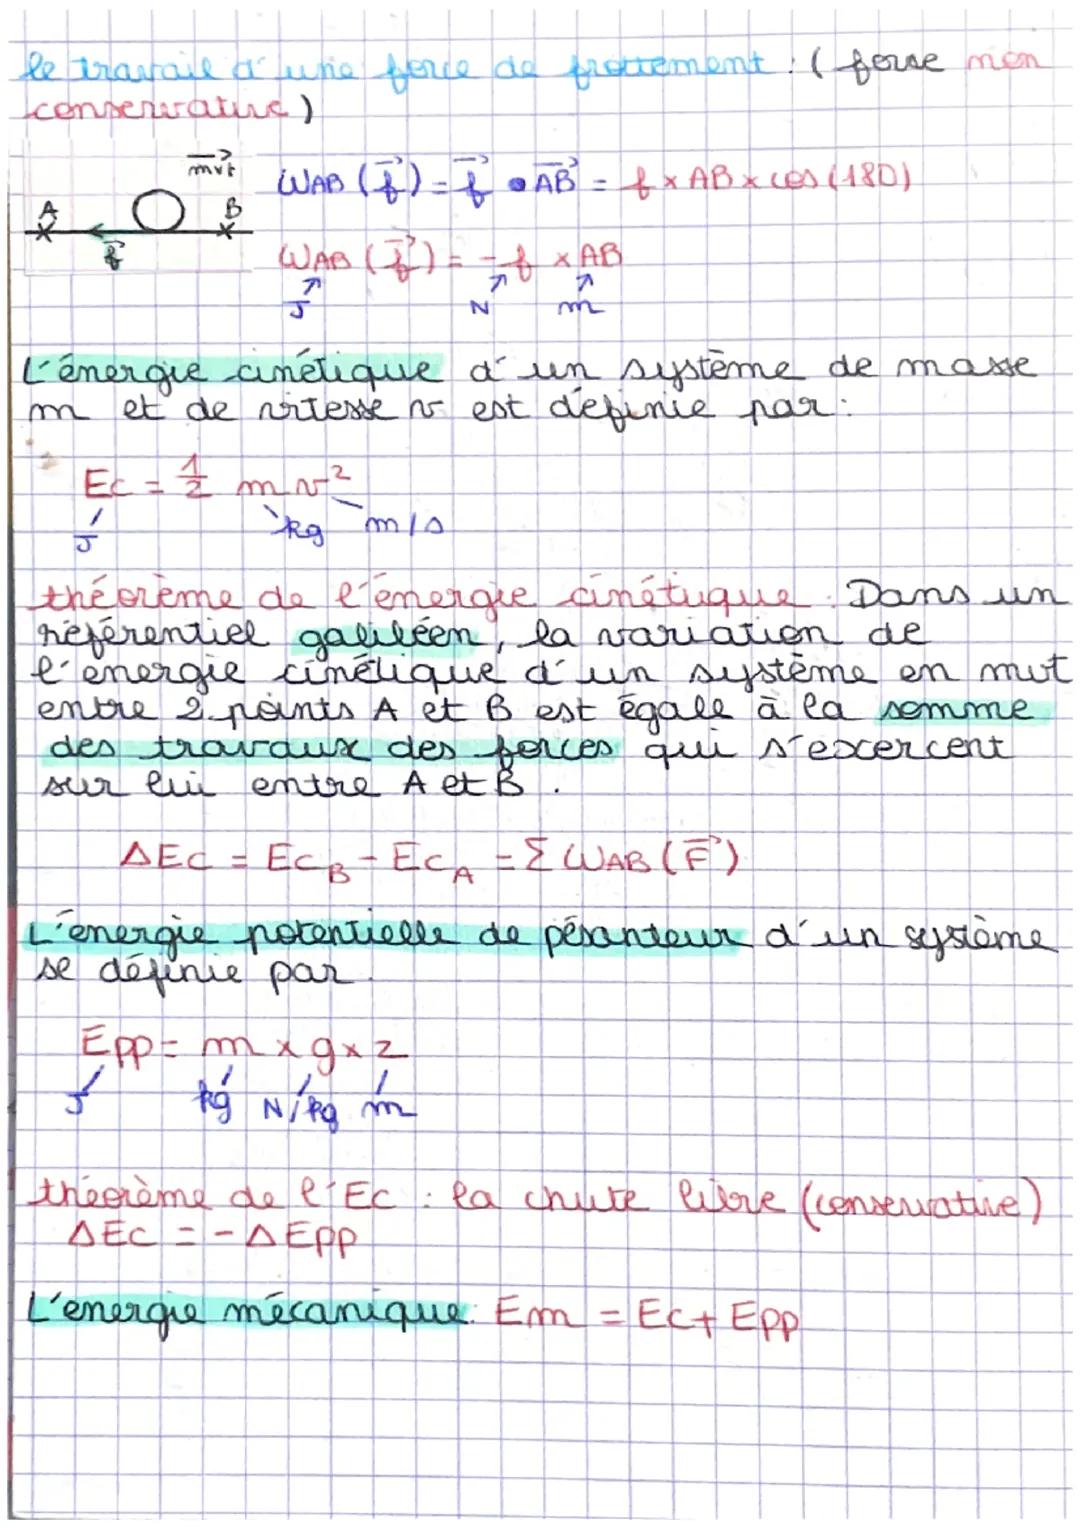 le travail d'une force de frottement : (forse non
conservative)
mvt
A B
f
WAB (f) = f • AB = f x AB x cos (180)
WAB (f) = - f x AB
J N m
L'énergie cinétique d'un système de masse
m et de vitesse v est définie par :
Ec = 1/2 m v²
J kg m/s
théorème de l'énergie cinétique : Dans un
référentiel galiléen, la variation de
l'énergie cinétique d'un système en mvt
entre 2 points A et B est égale à la somme
des travaux des forces qui s'excercent
sur lui entre A et B.
ΔEc = EcB - EcA = Σ WAB (F)
L'énergie potentielle de pésanteur d'un système
se définie par.
Epp = m x g x z
J kg N/kg m
théorème de l'Ec : la chute libre (conservative)
ΔEc = - ΔEpp
L'énergie mécanique : Em = Ec + Epp